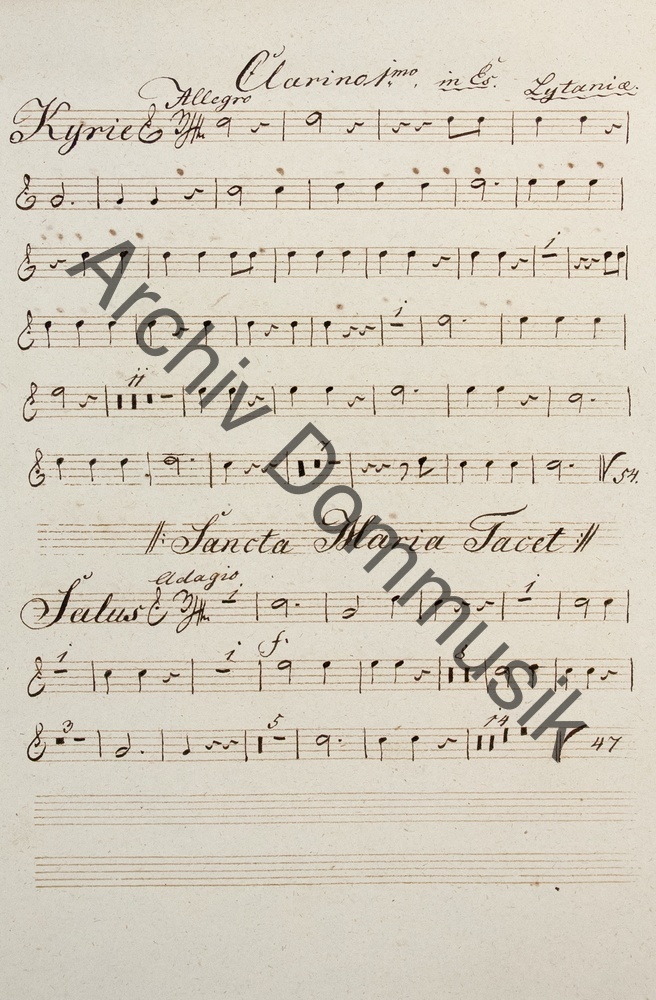 Clarino 1mo. in Es. Lytaniæ.
Allegro
Kyrie
1
1
11
1
54.
Sancta Maria Tacet
Adagio
Salus
1
1
1
1
f.
3
5
14
47
Archiv Dommusik